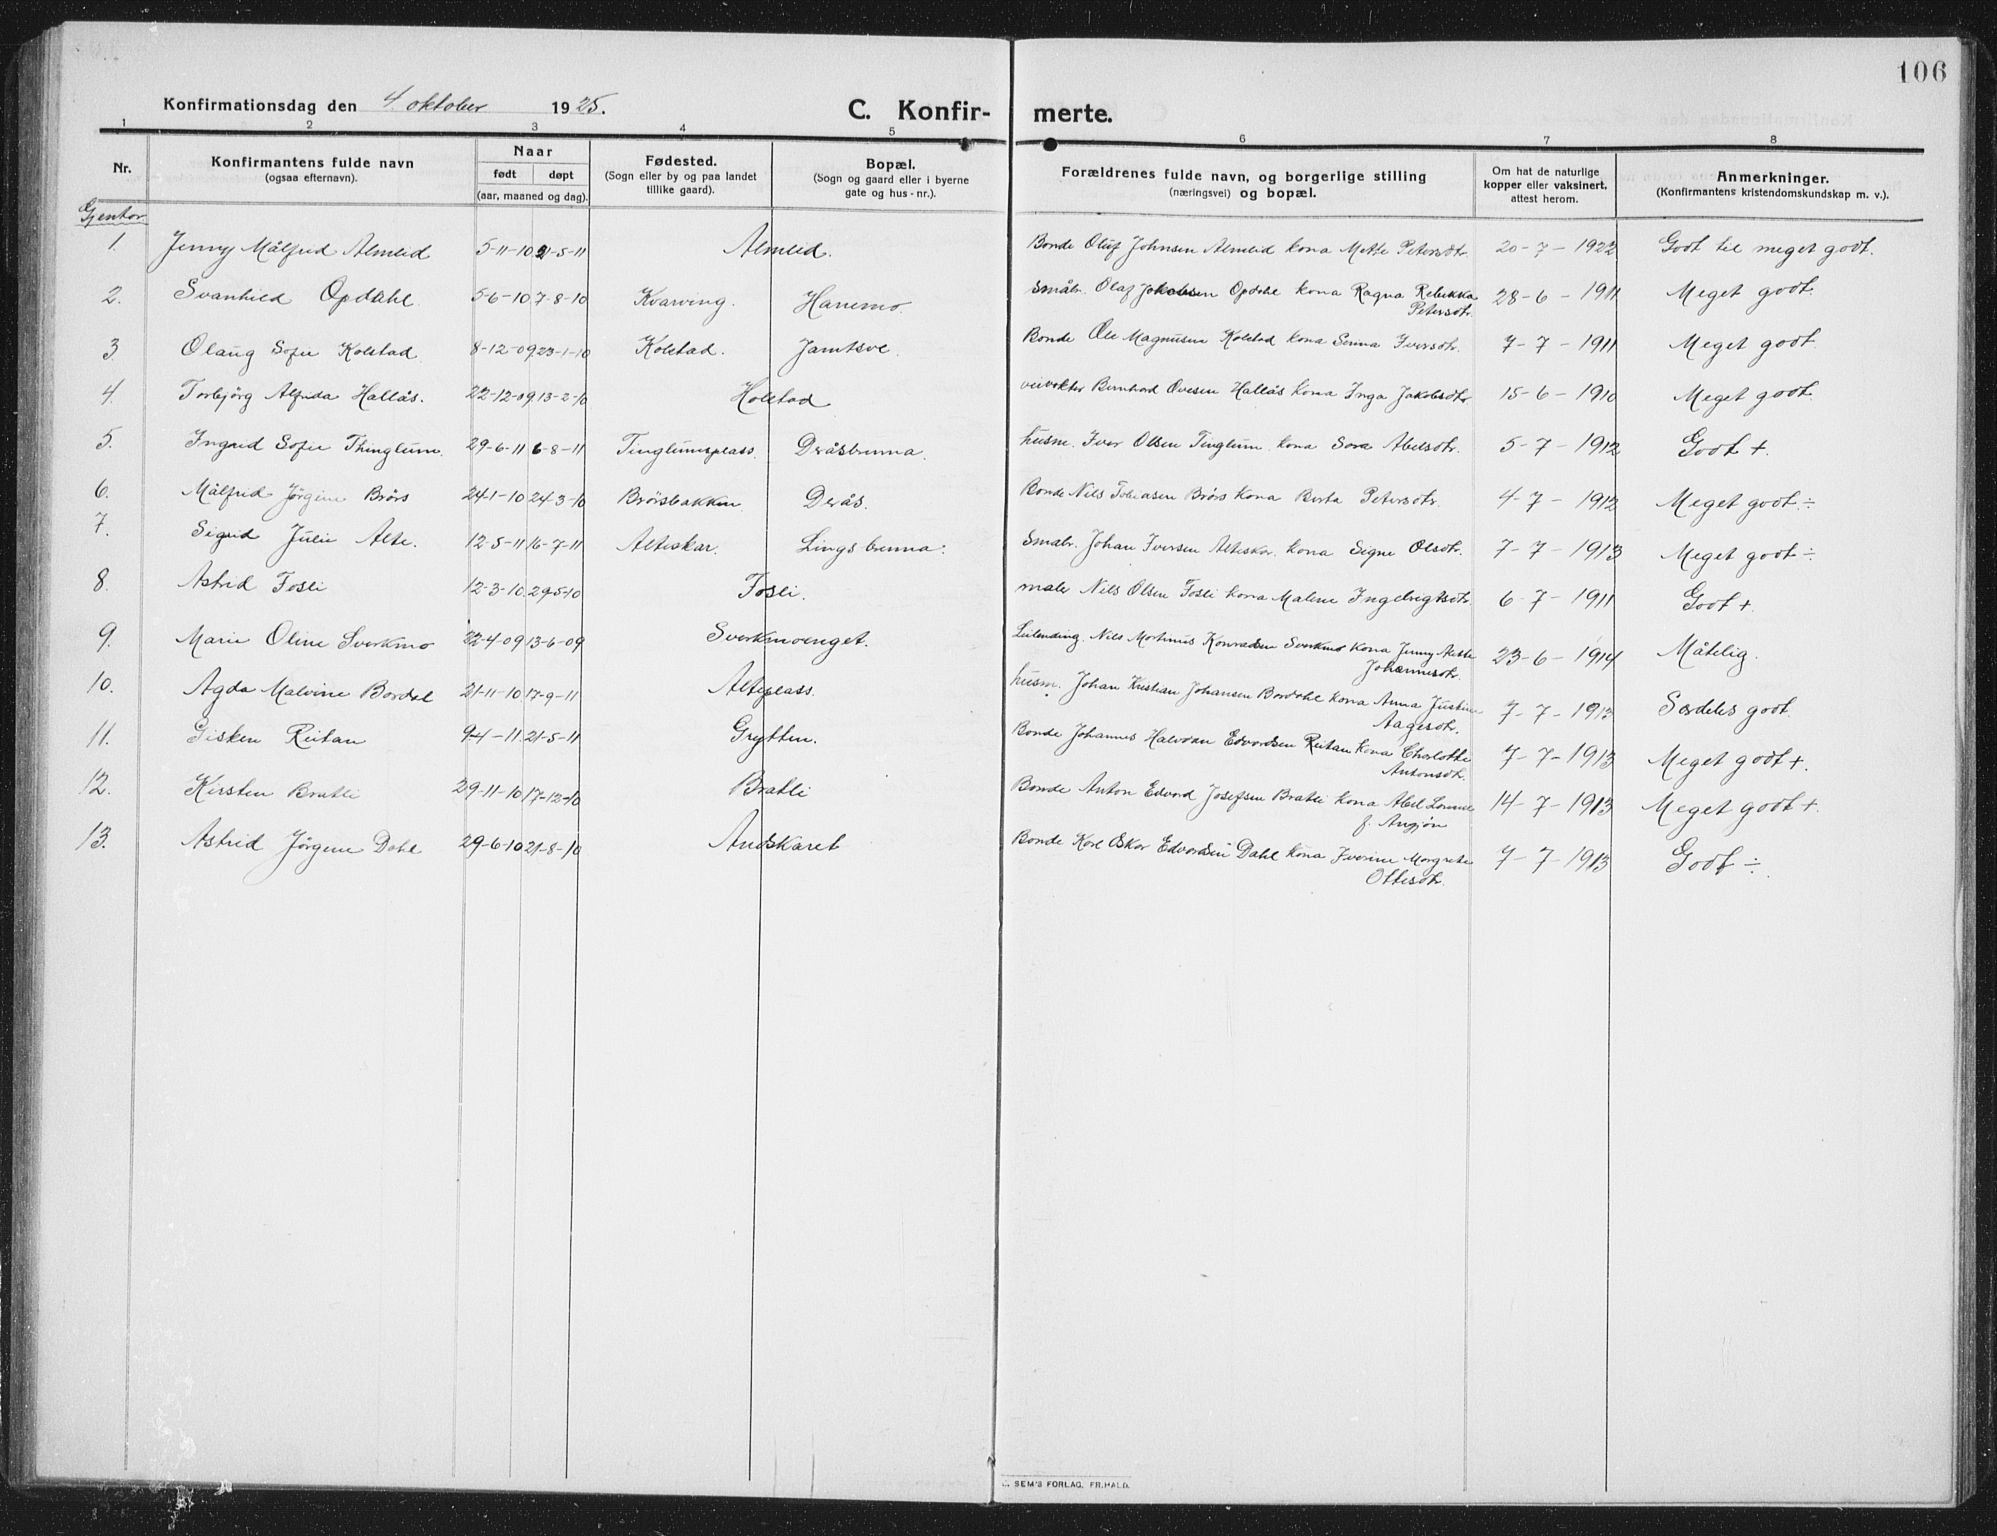 106
Konfirmationsdag den 4. oktober 1925.
C. Konfir- merte.
1 2 3 4 5 6 7 8
Nr.
Konfirmantens fulde navn
(ogsaa efternavn).
Naar
født døpt
(aar, maaned og dag).
Fødested.
(Sogn eller by og paa landet
tillike gaard).
Bopæl.
(Sogn og gaard eller i byerne
gate og hus-nr.).
Forældrenes fulde navn, og borgerlige stilling
(næringsvei) og bopæl.
Om hat de naturlige
kopper eller vaksinert,
attest herom.
Anmerkninger.
(Konfirmantens kristendomskundskap m. v.).
Gjenter
1. Jenny Målfrid Almlid 5-11-10 21-5-11 Almlid. Bonde Oluf Johnsen Almlid kona Mette Petersdtr. 20-7-1922 Godt til meget godt.
2. Svanhild Opdahl 5-6-10 7-8-10 Kvarving. Hanemo. Småbr. Olaf Jakobsen Opdahl kona Ragna Rebekka
Petersdtr. 28-6-1911 Meget godt.
3 Olaug Sofie Kolstad 8-12-09 23-1-10 Kolstad. Jamtsve. Bonde Ole Magnusen Kolstad kona Serina Iversdtr. 7-7-1911 Meget godt.
4. Torbjörg Alfrida Hallås. 22-12-09 13-2-10 Holstad veivokter Bernhard Ovesen Hallås kona Inga Jakobsdtr 15-6-1910 Meget godt.
5. Ingrid Sofie Thinglum. 29-6-11 6-8-11 Tinglumsplass. Deråsbrenna. husm. Iver Olsen Tinglum kona Sara Abelsdtr. 5-7-1912 Godt +.
6. Målfrid Jörgine Brörs 24-1-10 24-3-10 Brörsbakken Derås. Bonde Nils Tobiasen Brörs kona Berta Petersdtr. 4-7-1912 Meget godt ÷
7. Sigrid Julie Alte. 12-5-11 16-7-11 Alteskar. Lingsbrenna. Småbr. Johan Iversen Alteskar. kona Signe Olsdtr. 7-7-1913 Meget godt ÷
8. Astrid Fosli 12-3-10 29-5-10 Fosli. maler Nils Olsen Fosli kona Malene Ingebrigtsdtr. 6-7-1911 Godt +.
9. Marie Oline Sverkmo 22-4-09 13-6-09 Sverkmoenget. Leilending. Nils Mortinus Konradsen Sverkmo kona Jenny
Johannesdtr. 23-6-1914 Måtelig.
10. Agda Malvine Bordal 21-11-10 17-9-11 Alteplass. husm. Johan Kristian Johansen Bordahl kona Anna Justine
Aagesdtr. 7-7-1913 Særdeles godt.
11. Gisken Reitan 9-4-11 21-5-11 Grytten. Bonde Johannes Halvdan Edvardsen Reitan kona Charlotte
Antonsdtr. 7-7-1913 Meget godt +.
12. Kirsten Bratli 29-11-10 17-12-10 Bratli Bonde Anton Edvard Josefsen Bratli kona Abel
f. Angjön 14-7-1913 Meget godt +
13. Astrid Jörgine Dahl 29-6-10 21-8-10 Andskaret Bonde Karl Oskar Edvardsen Dahl kona Iverine Margrete
Ottesdtr. 7-7-1913 Godt ÷.
SEM'S FORLAG, FR.HALD.